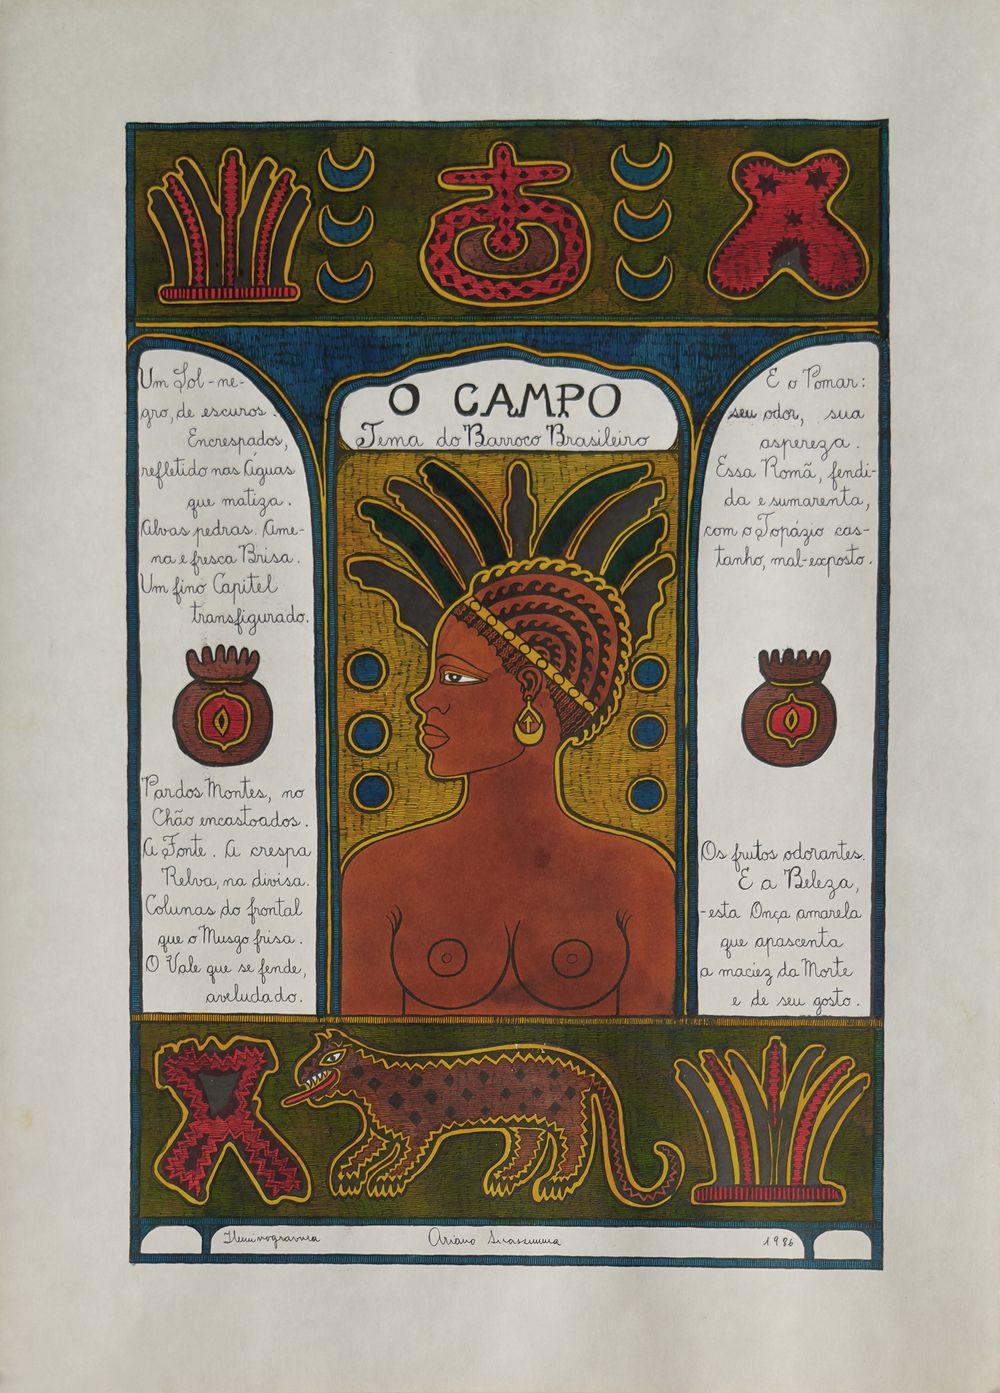 O CAMPO
Tema do Barroco Brasileiro
Um Sol-ne-
gro, de escuros
Encrespados,
refletido nas Águas
que matiza.
Alvas pedras. Ame-
na e fresca Brisa.
Um fino Capitel
transfigurado.
Pardos Montes, no
Chão encastoados.
A Fonte. A crespa
Relva, na divisa.
Colunas do frontal
que o Musgo frisa.
O Vale que se fende,
aveludado.
E o Pomar:
seu odor, sua
aspereza.
Essa Romã, fendi-
da e sumarenta,
com o Topázio cas-
tanho, mal-exposto.
Os frutos odorantes.
E a Beleza,
-esta Onça amarela
que apascenta
a maciez da Morte
e de seu gosto.
Iluminogravura
Ariano Suassuna
1986